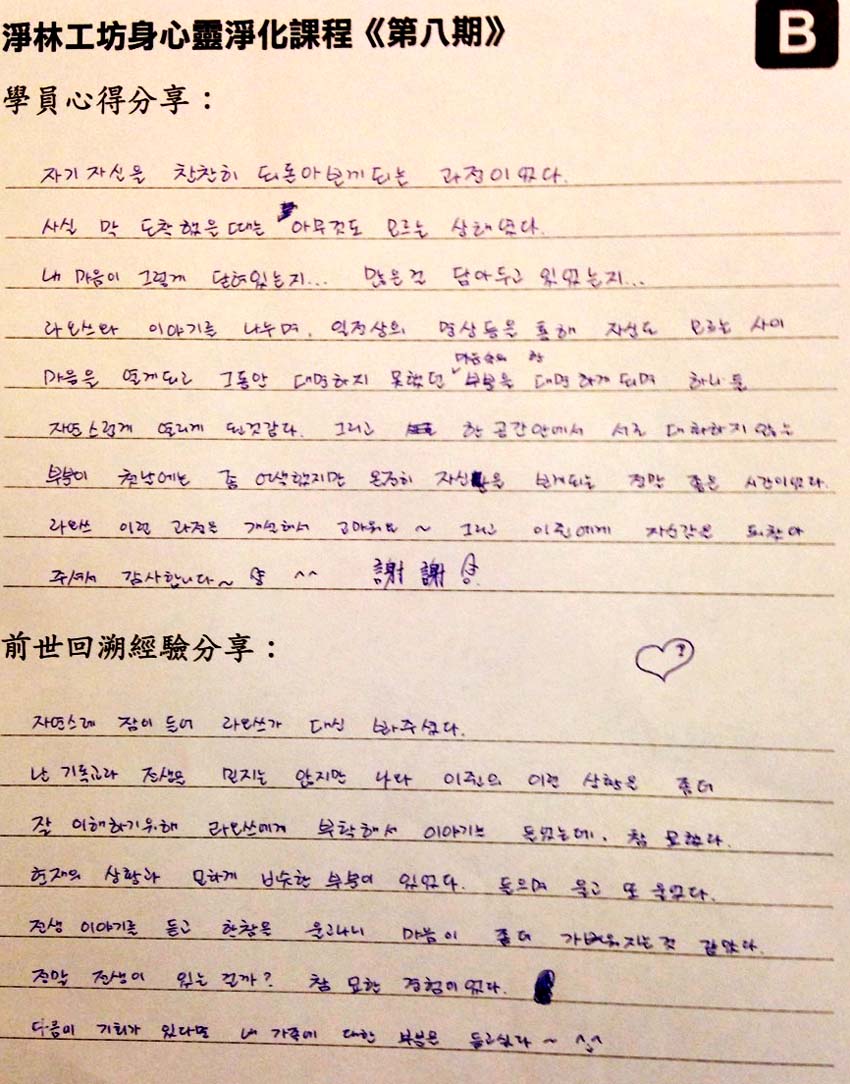 淨林工坊身心靈淨化課程《第八期》
B
學員心得分享：
자기 자신을 찬찬히 되돌아보게되는 과정이었다.
사실 막 도착했을때는 아무것도 모르는 상태였다.
내 마음이 그렇게 닫혀있는지... 많은걸 담아두고 있었는지...
라오쓰와 이야기를 나누며, 일정상의 명상등을 통해 자신도 모르는 사이
마음속의 한
마음을 열게되고 그동안 대면하지 못했던 부분을 대면하게 되며 하나 둘
자연스럽게 열리게 된것같다. 그리고 한 공간안에서 서로 대화하지 않는
부분이 첫날에는 좀 어색했지만 온전히 자신을 보게되는 정말 좋은 시간이었다.
라오쓰 이런 과정을 개설해서 고마워요 ~ 그리고 이준에게 자신감을 되찾아
주셔서 감사합니다~ ^^ 謝謝
前世回溯經驗分享：
자연스레 잠이 들어 라오쓰가 대신 봐주셨다.
난 기독교라 전생은 믿지는 않지만 나와 이준의 이런 상황을 좀더
잘 이해하기위해 라오쓰에게 부탁해서 이야기는 들었는데, 참 묘했다.
현재의 상황과 묘하게 비슷한 부분이 있었다. 들으며 울고 또 울었다.
전생 이야기를 듣고 한참을 울고나니 마음이 좀더 가벼워지는것 같았다.
정말 전생이 있는 걸까? 참 묘한 경험이었다.
다음에 기회가 있다면 내 가족에 대한 부분을 듣고싶다 ~ ^^